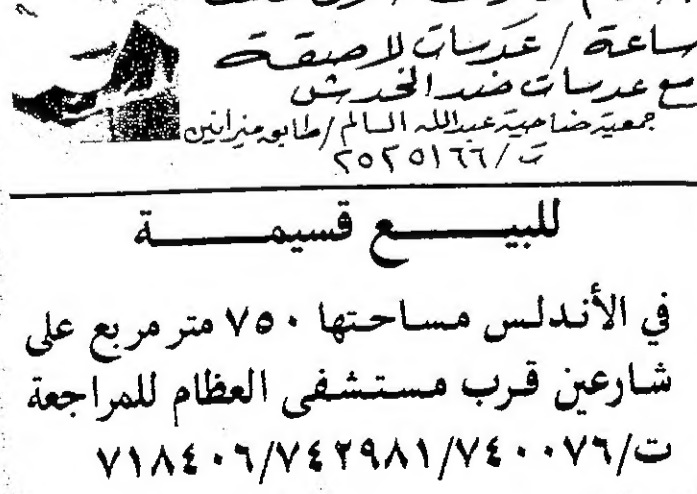 ساعة / عدسات لاصقة
مع عدسات ضد الخدش
جمعية ضاحية عبدالله السالم / طابق ميزانين
ت / ٢٥٢٥١٦٦
للبيع قسيمة
في الأندلس مساحتها ٧٥٠ متر مربع على
شارعين قرب مستشفى العظام للمراجعة
ت/٧٤٠٠٧٦/٧٤٢٩٨١/٧١٨٤٠٦